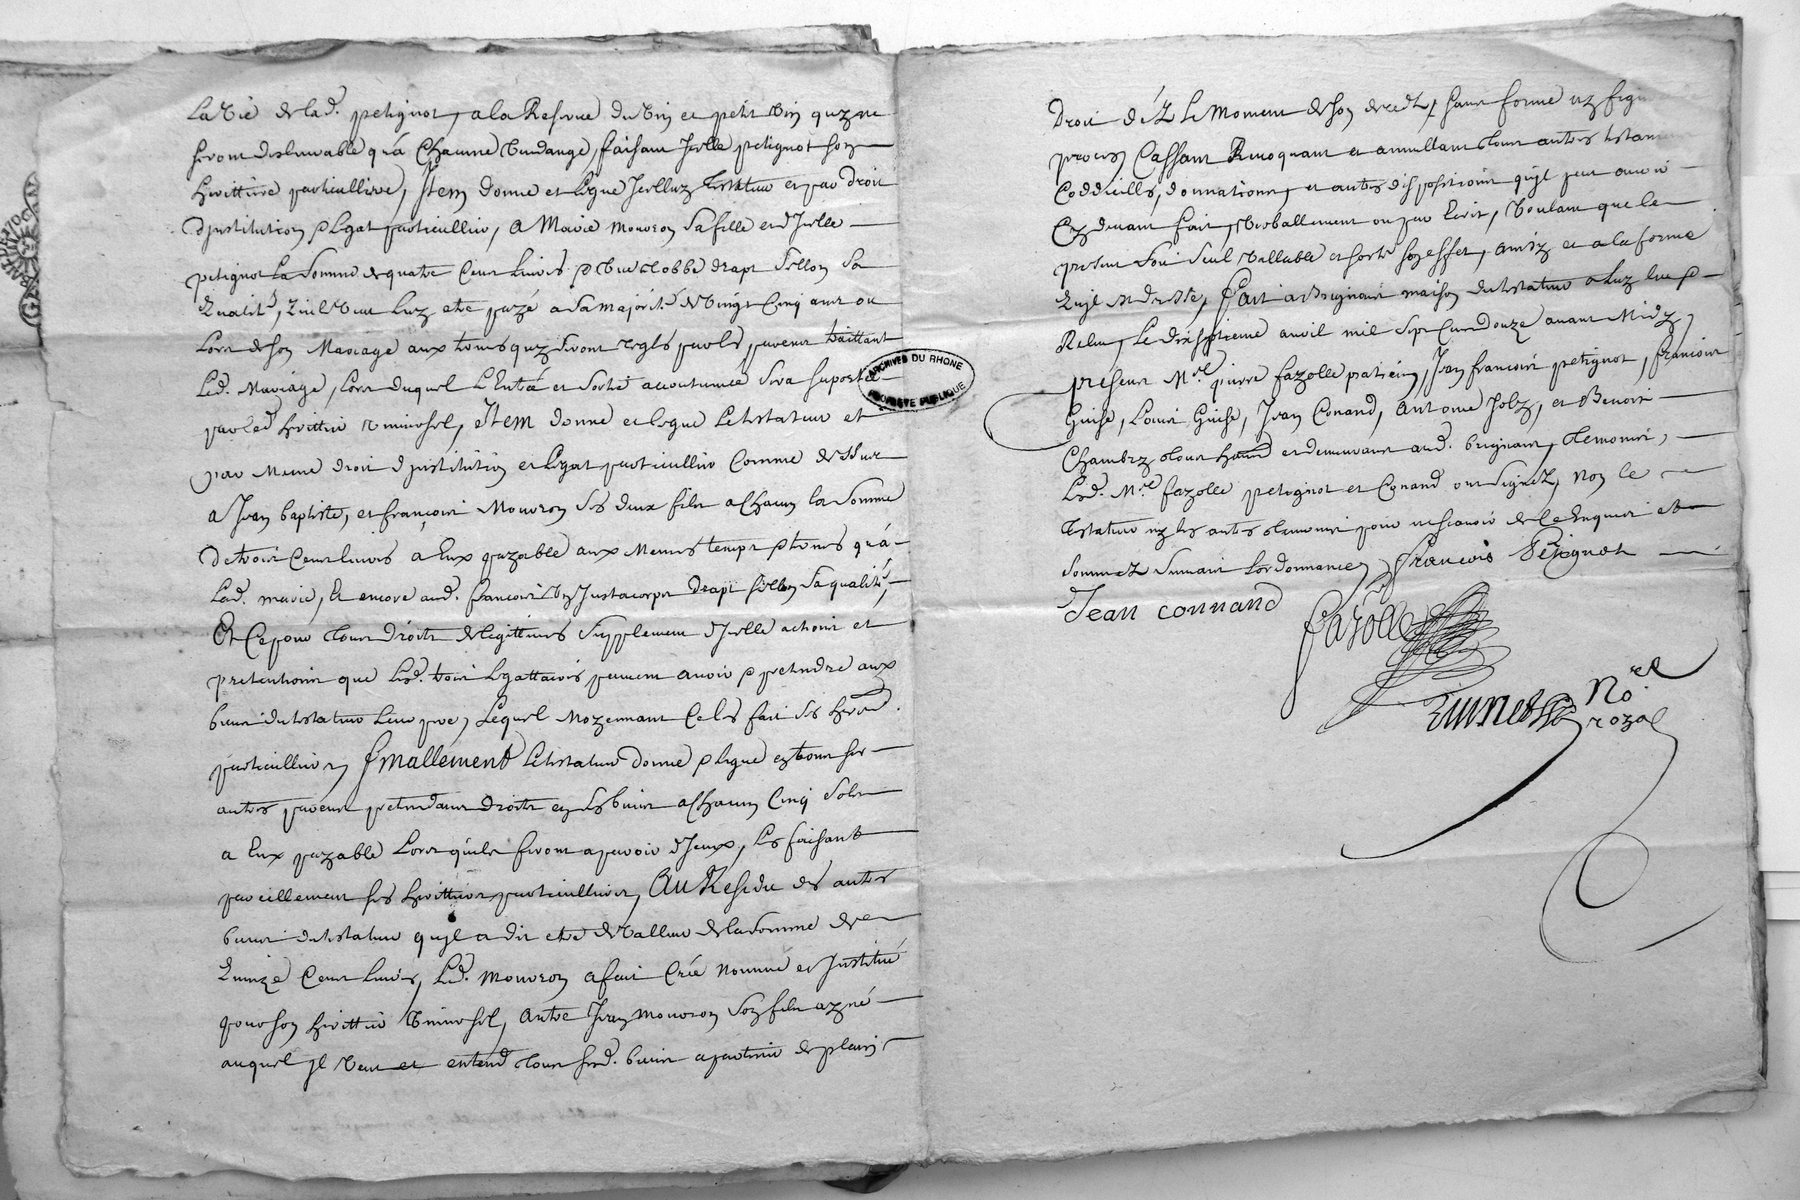 La vie de lad. petignot, a la Reserve du vin et petit vin quy ne
seront deslivrable qu'à Chacune vendange, faisant Icelle petignot son
herittiere particulliere, Item donne et legue Icelluy testateur et par droit
d'institution & legat particullier, a Marie Mouron sa fille et d'Icelle
petignot La somme de quatre Cent livres & une robbe drapt sellon sa
qualité, qu'il veut luy etre payé a sa majorité de vingt Cinq ans ou
Lors de son Mariage aux termes quy seront reglés par les parents traittant
Led. Mariage, lors duquel L'Entrée et sortie accoutumée sera suportée
par led. herittier universel, Item donne et legue le testateur et
par Meme droit d'institution et legat particullier Comme dessus
a Jean baptiste, et françois Mouron ses deux fils a Chacun la somme
de trois Cent livres a Eux payable aux Memes temps & termes qu'à
Lad. marie, Et encore aud. françois un Justacorps drapt sellon sa qualité,
Et Ce pour tous droits de legitimes supplement d'Icelle actions et
pretentions que Lesd. trois legattaires peuvent avoir & pretendre aux
biens du testateur leur pere, Lequel Moyennant Ce les fait ses herit.
particulliers, finallement le testateur donne & legue a tous ses
autres parents pretendants droits en ses biens a Chacun Cinq sols
a Eux payable Lors qu'ils feront aparoir d'Iceux, les faisant
pareillement ses herittiers particulliers, Au Residu des autres
biens du testateur qu'il a dit etre de valleur de la somme de
quinze Cent livres, led. Mouron a fait Crée Nommé et Institué
pour son herittier universel, autre Jean Mouron son fils ayné
auquel Jl veut et entend tous sesd. biens apartenir de plain
droit déz le Moment de son deceds, sans forme ny figure
procès Cassant Revoquant et annullant tous autres testaments
Coddicills, donnations, et autres dispositions qu'jl peut avoir
Cy devant fait, verballement ou par Ecrit, voulant que le
present soit seul vallable et sorte son effet, ainsy et a la forme
qu'jl est dresse, fait a Brignais maison du testateur a luy leu &
Releu, Le dixseptieme avril mil sept Cent douze avant Midy,
present Mre. pierre fazolle praticien, Jean françois petignot, françois
Guise, Louis Guise, Jean Conand, Antoine Joly, et Benoit
Chambry tous habit. et demeurant aud. brignais, temoins,
Lesd. Mre. fazolle petignot et Conand ont signez, Non le
testateur ny les autres temoins pour ne sçavoir de Ce Enquis et
sommez suivant l'ordonnance, françois Petignot
Jean connand
fazolle
No.re
rozal